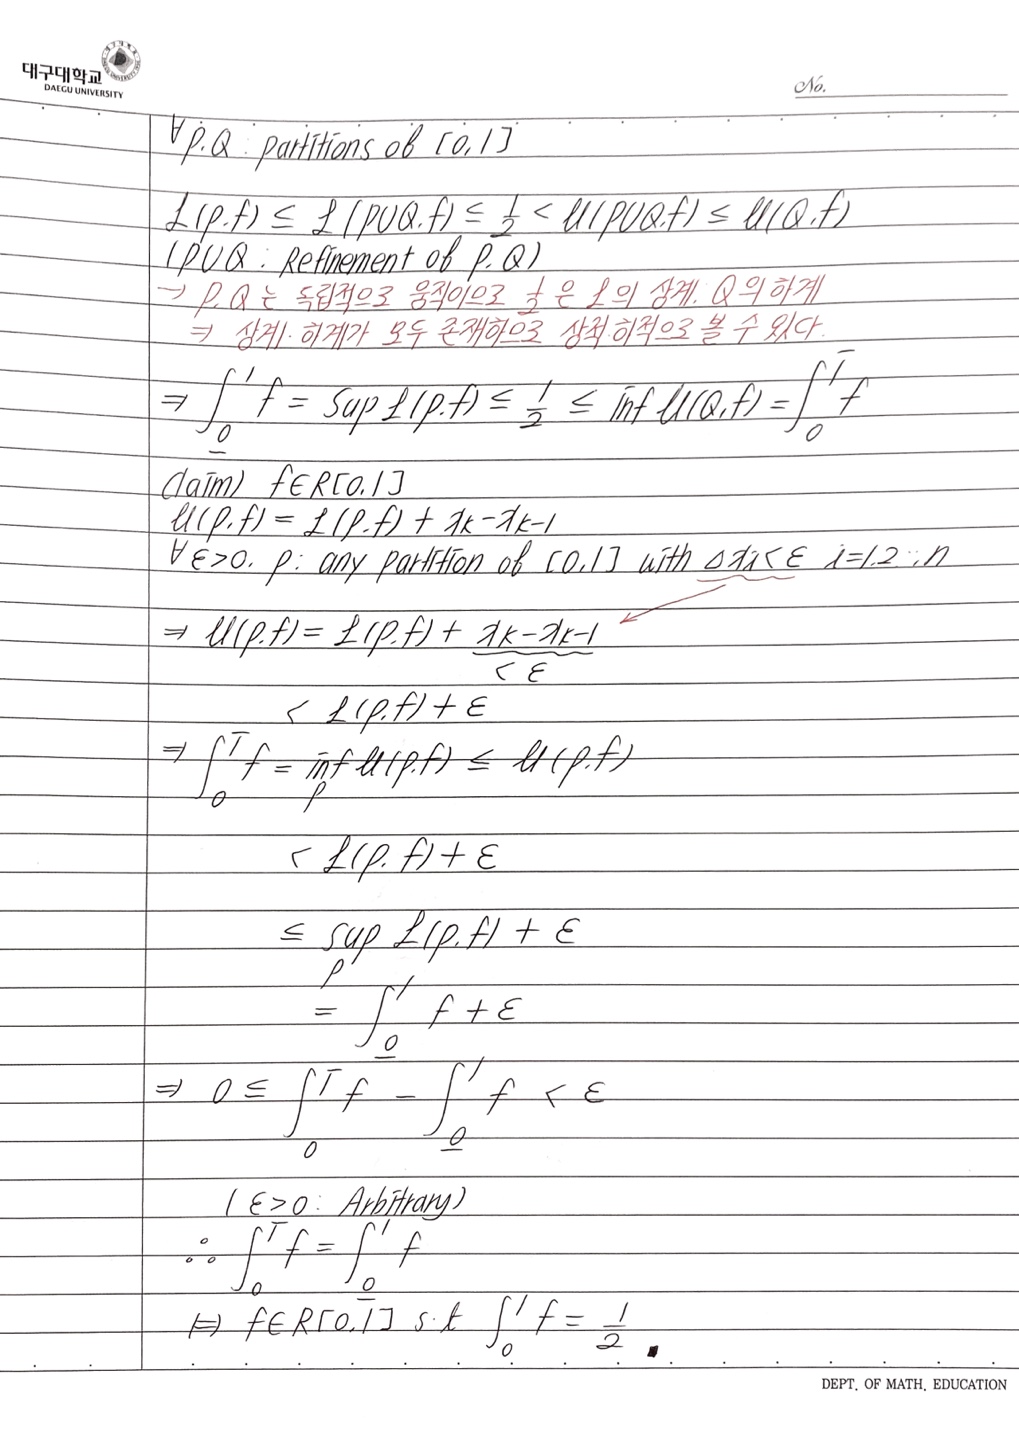 대구대학교
DAEGU UNIVERSITY
No.
∀ P.Q : partitions of [0,1]
L(P.f) ≤ L(PUQ.f) ≤ 1/2 < U(PUQ.f) ≤ U(Q.f)
(PUQ : Refinement of P.Q)
→ P.Q는 독립적으로 움직이므로 1/2은 L의 상계. Q의 하계
⇒ 상계. 하계가 모두 존재하므로 상적.하적으로 볼 수 있다.
⇒ ∫_0^1 f = sup L(P.f) ≤ 1/2 ≤ inf U(Q.f) = ∫_0^1 f
Claim) f∈R[0,1]
U(P.f) = L(P.f) + xk-xk-1
∀ε>0. P: any partition of [0,1] with Δxi<ε i=1.2 ...n
⇒ U(P.f) = L(P.f) + xk-xk-1
< ε
< L(P.f) + ε
⇒ ∫_0^1 f = inf U(P.f) ≤ U(P.f)
P
< L(P.f) + ε
≤ sup L(P.f) + ε
P
= ∫_0^1 f + ε
⇒ 0 ≤ ∫_0^1 f - ∫_0^1 f < ε
(ε>0 : Arbitrary)
∴ ∫_0^1 f = ∫_0^1 f
⇔ f∈R[0,1] s.t ∫_0^1 f = 1/2 .
DEPT. OF MATH. EDUCATION